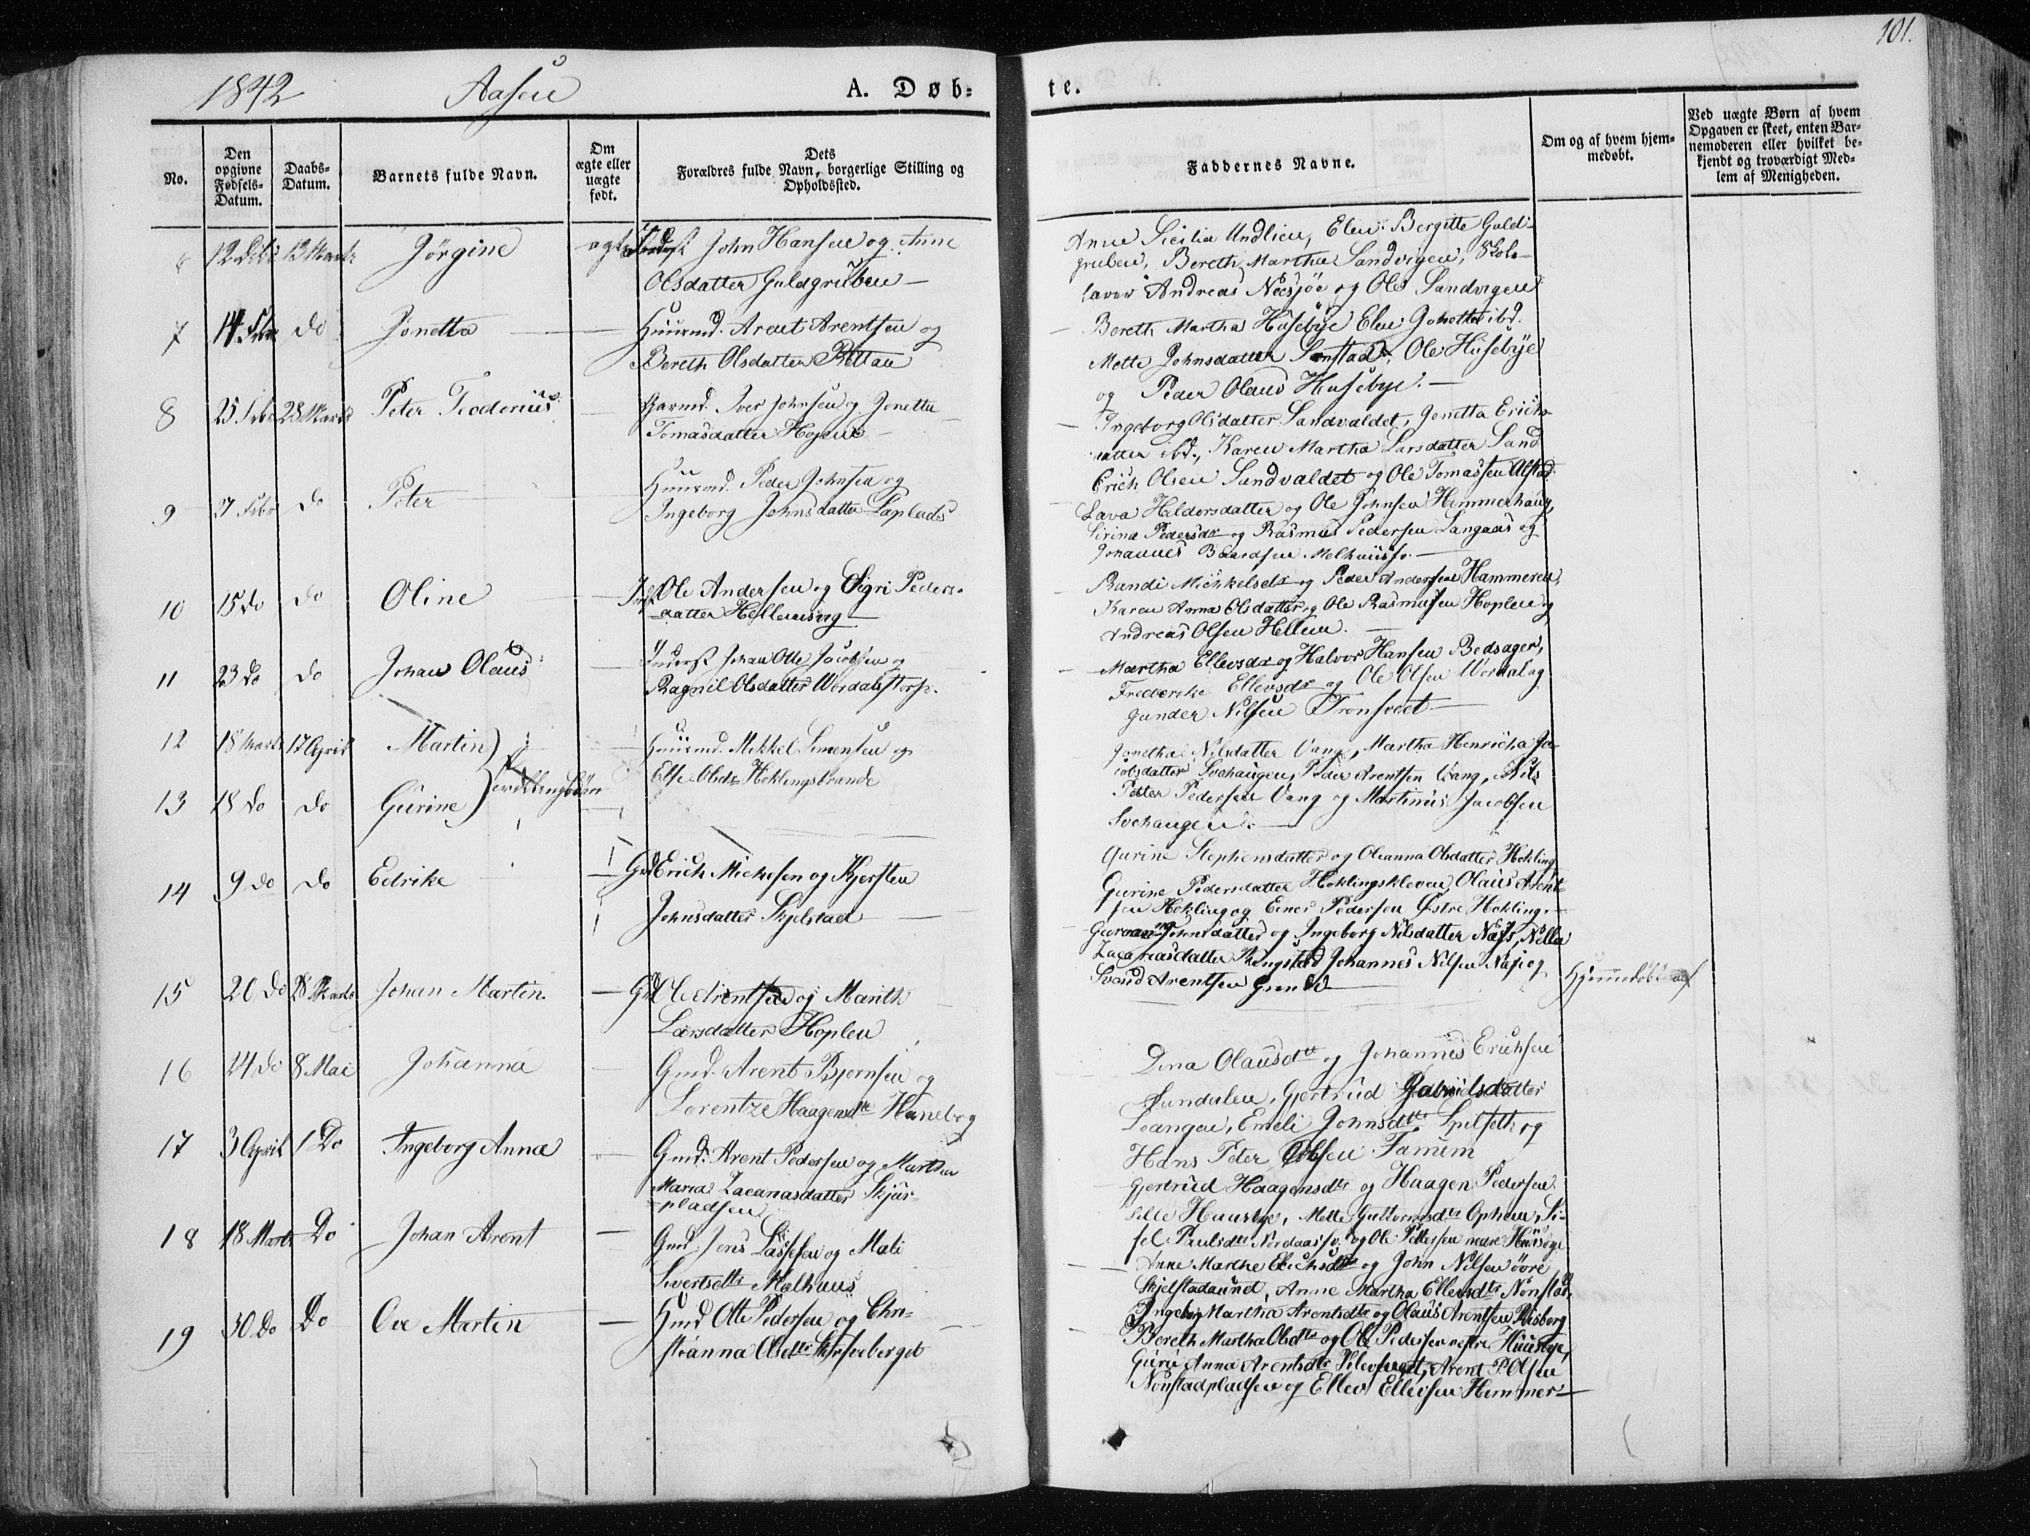 1842 Aasen A. Døb-
te. 101.
No.
Den opgivne Fødsels-Datum.
Daabs-Datum.
Barnets fulde Navn.
Om ægte eller uægte født.
Dets Forældres fulde Navn, borgerlige Stilling og Opholdssted.
Faddernes Navne.
Om og af hvem hjem-medøbt.
Ved uægte Børn af hvem Opgaven er skeet, enten Bar-nemoderen eller hvilket be-kjendt og troværdigt Med-lem af Menigheden.
12 13 Marts Jørgine ægte John Hansen og Anne
Olsdatter Guldgruben —
Anne Sicilia Undlien, Elen Bergitte Guld-
gruben, Bereth Martha Sandvigen, Skole-
lærer Andreas Nesjøe og Ole Sandvigen
7 14 Febr do Jonetta — Huusmd. Arent Arentsen og
Bereth Olsdatter Rettan
Bereth Martha Husebye Elen Jonetta ibd.
Mette Johnsdatter Sonstad, Ole Husebye
og Peder Olaus Husebye. —
8 25 Febr 28 Marts Peter Teoderius — Gaarmd. Iver Johnsen og Jonetta
Tomasdatter Hojem —
Ingeborg Olsdatter Sandvaldet, Jonetta Erichs-
datter ibd., Karen Martha Larsdatter Sand
Erich Olsen Sandvaldet og Ole Tomassen Alstad.
9 27 Febr do Peter — Huusmd. Peder Johnsen og
Ingeborg Johnsdatter Saplads
Lava Heldersdatter og Ole Johnsen Hammerhaug,
Sirina Pedersdr og Rasmus Pedersen Langaas og
Johannes Baardsen Melhuus. —
10 15 do do Oline — Ole Andersen og Sigri Peders-
datter Hellem —
Randi Mickelsdr og Peder Andersen Hammeren,
Karen Anna Olsdatter og Ole Rasmusen Hoplen og
Andreas Olsen Hellem. —
11 23 do do Johan Olaus — Inderst Johan Otte Jacobsen og
Ragnil Olsdatter Werdalstorp.
Martha Ellevsdr og Halvor Hansen Bedsager,
Frederike Ellevsdr og Ole Olsen Werdal og
Gunder Nilsen Tronsveet —
12 18 Marts 17 April Martin
Huusmd. Mikkel Simensen og
Else Olsdr Hoklingstrande
Jonetha Nilsdatter Vang, Martha Henricha Ja-
cobsdatter Svehaugen, Peder Arentsen Vang, Nils
13 18 do do Gurine Tvillingbørn
Petter Pedersen Vang og Martinus Jacobsen
Svehaugen. —
14 9 do do Edrike — Gmd Erich Michelsen og Kjersten
Johnsdatter Skjelstad —
Gurine Stephensdatter og Oleanna Olsdatter Hokling
Gurine Pedersdatter Hoklingskleven, Olaus Arent-
sen Hokling og Einer Pedersen Østre Hokling. —
15 20 do 28 Marts Johan Martin — Gmd Ole Arentsen og Marith
Larsdatter Hoplen
Johnsdatter og Ingeborg Nilsdatter Næss, Nella
Zacariasdatter Ringstad Johannes Nilsen Næss og
Svend Arentsen
Hjemmedøbt af
16 24 do 8 Mai Johanna Gmd. Arent Bjørnsen og
Lorentze Haagensdtr Haneborg
Dena Olausdtr og Johannes Erichsen
Sundalen, Gjertrud Gabrielsdatter
Leangen, Emeli Johnsdtr Spilseth og
Hans Peter Olsen Fanum
17 3 April 1 Do Ingeborg Anna Gmd. Arent Pedersen og Martha
Maria Zacariasdatter Skjør-
pladsen
Gjertrud Haagensdtr og Haagen Pedersen
Husbye, Mette Guttormsdtr Ophem, Si-
sel Paulsdtr Nordaas og Ole Pettersen nedre Husbye
18 18 Marts Do Johan Arent — Gmd Jens Lassesen og Mali
Sivertsdtr Malhaus
Anne Marthe Erichsdtr og John Nilsen övre
Skjelstadaund, Anne Martha Ellensdtr Nonstad
Ingeborg Martha Arentsdtr og Olaus Arentsen Risberg
19 30 Do Do Ove Martin — Husmd Otte Pedersen og Chri-
stianna Olsdtr Skreberget
Bereth Martha Olsdtr og Ole Pedersen nedre Huusbye,
Guru Anna Arentsdtr, Arent P. Olsen
Nonstadpladsen og Ellev Ellevsen Hemmer —